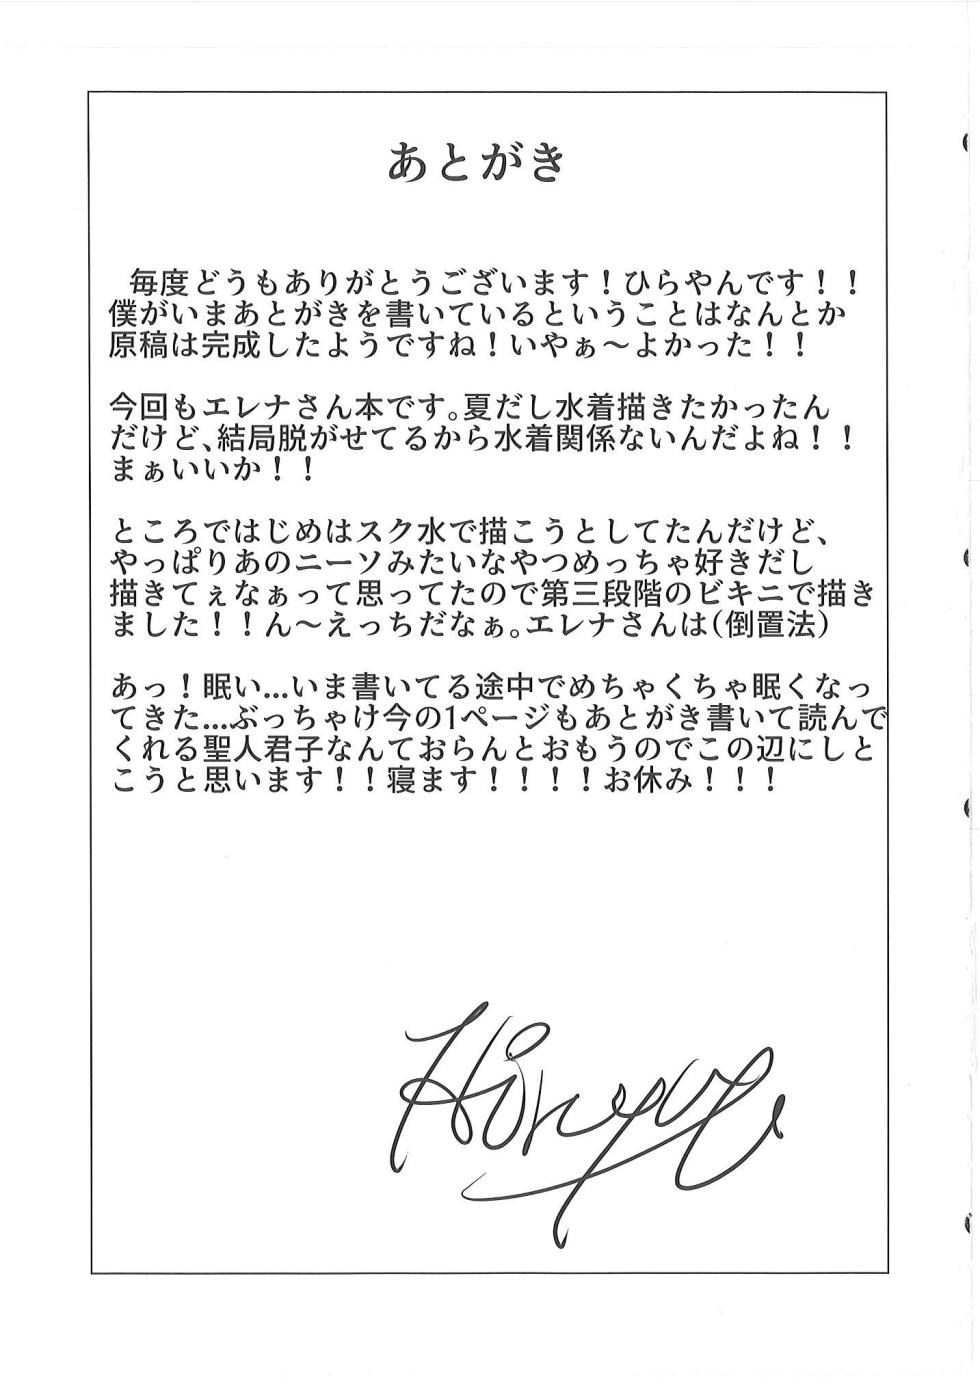 あとがき
毎度どうもありがとうございます！ひらやんです！！
僕がいまあとがきを書いているということはなんとか
原稿は完成したようですね！いやぁ～よかった！！
今回もエレナさん本です。夏だし水着描きたかったん
だけど、結局脱がせてるから水着関係ないんだよね！！
まぁいいか！！
ところではじめはスク水で描こうとしてたんだけど、
やっぱりあのニーソみたいなやつめっちゃ好きだし
描きてぇなぁって思ってたので第三段階のビキニで描き
ました！！ん～えっちだなぁ。エレナさんは（倒置法）
あっ！眠い...いま書いてる途中でめちゃくちゃ眠くなっ
てきた...ぶっちゃけ今の1ページもあとがき書いて読んで
くれる聖人君子なんておらんとおもうのでこの辺にしと
こうと思います！！寝ます！！！！お休み！！！